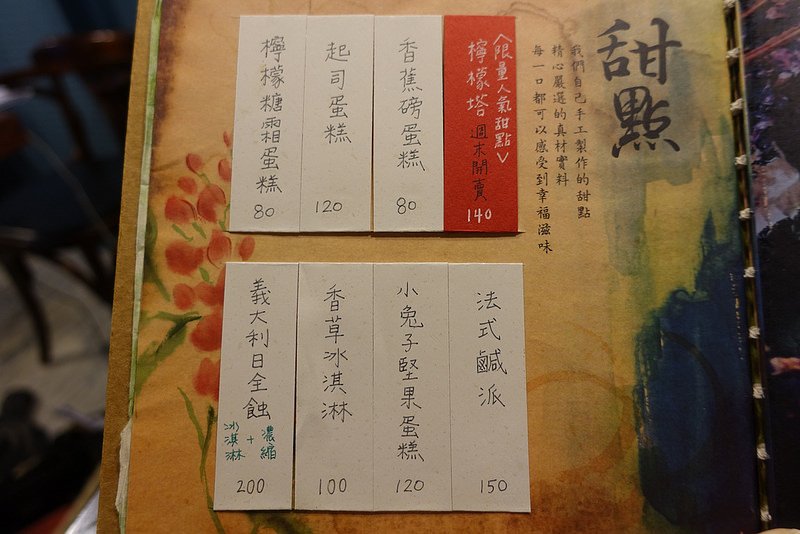 甜點
我們自己手工製作的甜點
精心嚴選的真材實料
每一口都可以感受到幸福滋味
<限量人氣甜點>
檸檬塔 週末開賣
140
香蕉磅蛋糕
80
起司蛋糕
120
檸檬糖霜蛋糕
80
法式鹹派
150
小兔子堅果蛋糕
120
香草冰淇淋
100
義大利日全蝕
濃縮
+
冰淇淋
200